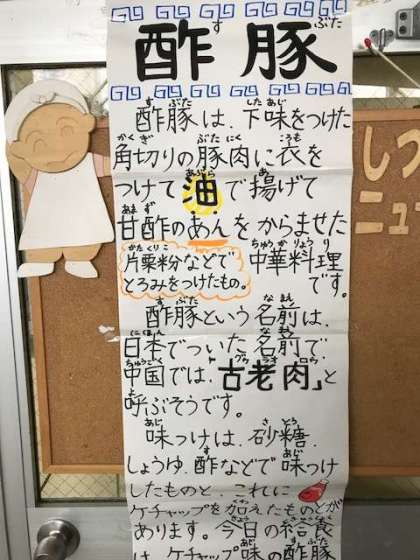 酢豚
酢豚は、下味をつけた
角切りの豚肉に衣を
つけて油で揚げて
甘酢のあんをからませた
片栗粉などで
とろみをつけたもの。
中華料理
です。
酢豚という名前は、
日本でついた名前で、
中国では、「古老肉」と
呼ぶそうです。
味つけは、砂糖、
しょうゆ、酢などで味つけ
したものと、これに
ケチャップを加えたものとが
あります。今日の給食
は、ケチャップ味の酢豚
しつ
ニュ